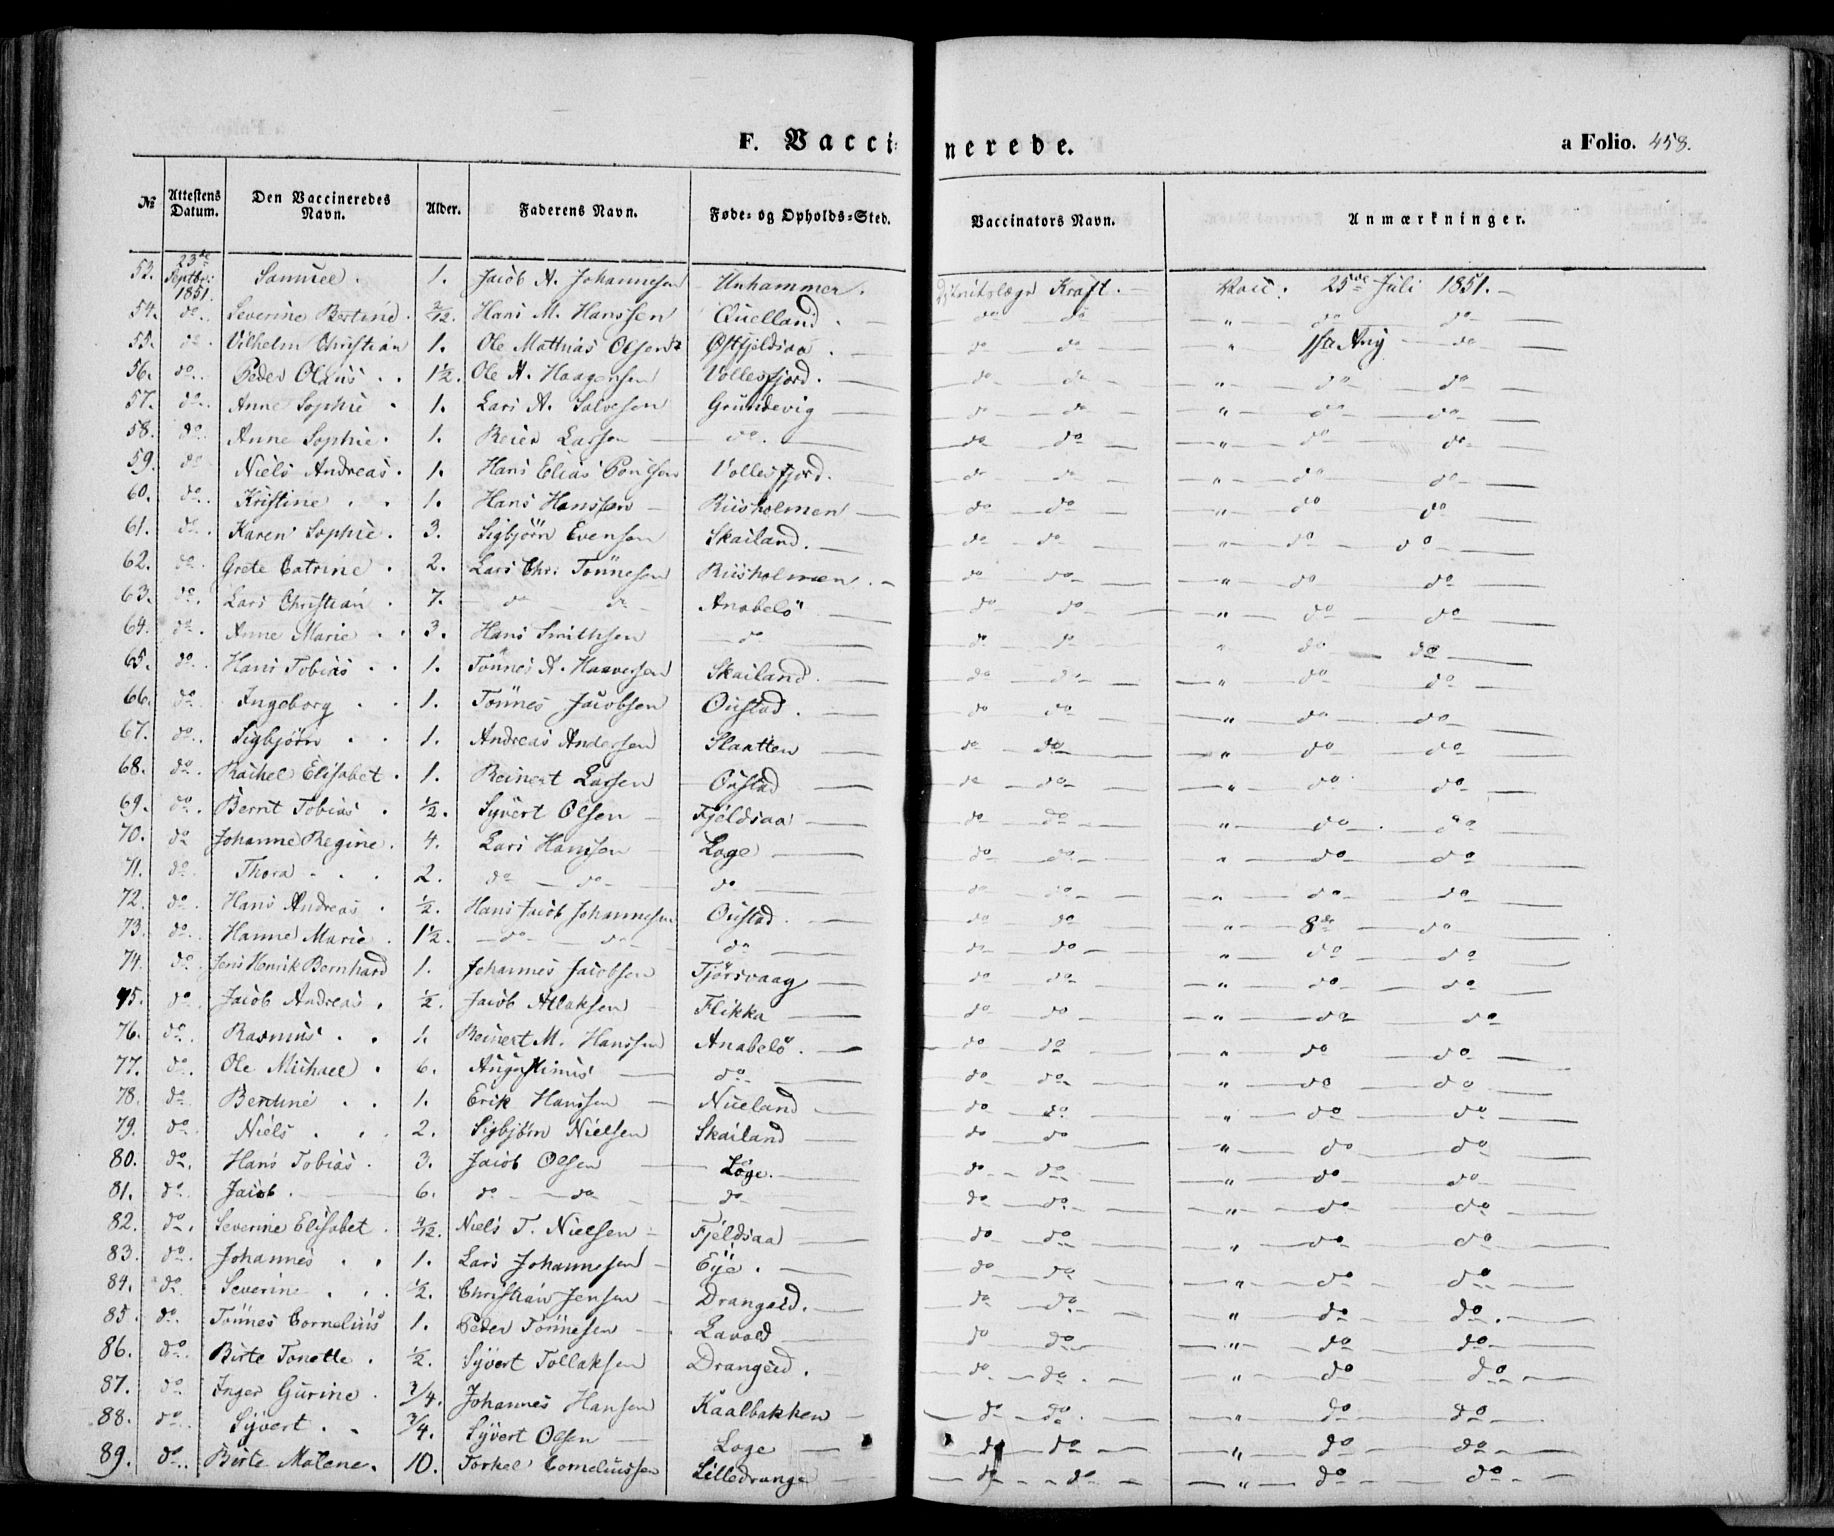 F. Vaccinerede.
a Folio. 458.
№ Attestens Datum. Den Vaccineredes Navn. Alder. Faderens Navn. Føde- og Opholds-Sted. Vaccinators Navn. Anmærkninger.
53. 23de Septbr: 1851. Samuel. 1. Jacob A. Johannesen Unhammer. Distriktslæge Kraft. Vacc. 25de Juli 1851.
54. do. Severine Bertine. Hans M. Hanssen Quelland. do do " do do
55. do. Vilhelm Christian 1. Ole Mathias Olsen Østfjeldsaa. do do " 1ste Aug do
56. do. Peder Olaus. 1½. Ole A. Haagensen Vollesfjord. do do " do do
57. do. Anne Sophie. 1. Lars A. Salvesen Grundevig do do " do do
58. do. Anne Sophie. 1. Reier Larsen do. do do " do do
59. do Niels Andreas. 1. Hans Elias Poulsen Vollesfjord. do do " do do
60. do. Kristine. 1. Hans Hanssen Riisholmen do do " do do
61. do. Karen Sophie. 3. Sigbjörn Evensen Skailand. do do " do do
62. do. Grete Catrine. 2. Lars Chr. Tönnesen Riisholmen. do do " do do
63. do. Lars Christian. 7. do do Anabelö do do " do do
64. do. Anne Marie. 3. Hans Smithsen do do do " do do
65. do. Hans Tobias. 1. Tönnes A. Haaversen Skailand. do do " do do
66. do Ingeborg. 1. Tönnes Jacobsen Oustad. do do " do do
67. do. Sigbjørn. 1. Andreas Andersen Slaatten do do " do do
68. do. Rachel Elisabet. 1. Reinert Larsen Oustad do do " do do
69. do. Bernt Tobias. ½. Syvert Olsen Fjeldsaa do do " do do
70. do Johanne Regine. 4. Lars Hanssen Loge do do " do do
71. do. Thora. 2. do do do do do " do do
72. do. Hans Andreas. ½. Hans Jacob Johannesen Oustad. do do " 8de do
73. do. Hanne Marie. 1½. do do do do do " do do
74. do. Jens Henrik Bernhard 1. Johannes Jacobsen Tjörsvaag do do " do do
75. do Jacob Andreas. ½. Jacob Atlaksen Flikka do do " do do
76. do. Rasmus. 1. Reinert M. Hanssen Anabelö. do do " do do
77. do. Ole Michael. 6. Augustinus do do do " do do
78. do Bertine. 1. Erik Hanssen Nueland do do. " do do
79. do. Niels. 2. Sigbjörn Nielsen Skailand do do " do do
80. do. Hans Tobias. 3. Jacob Olsen Loge. do do " do do
81. do. Jacob. 6. do do do do do " do do
82. do. Severine Elisabet. Niels T. Nielsen Fjeldsaa do do " do do
83. do. Johannes. 1. Lars Johannesen Eije. do do " do do
84. do Severine. ½. Christian Jensen Drangeid. do do " do do
85. do. Tönnes Cornelius 1. Peder Tönnesen Lavold do do " do do.
86. do. Birte Tonette. ½. Syvert Tollaksen Drangeid. do do " do do
87. do Inger Gurine. ¾. Johannes Hansen Kaalbakken do do. " do do
88. do Syvert. ¾. Syvert Olsen Loge do do " do do
89. do. Birte Malene. 10. Torkel Corneliussen Lilledrange do do " do do